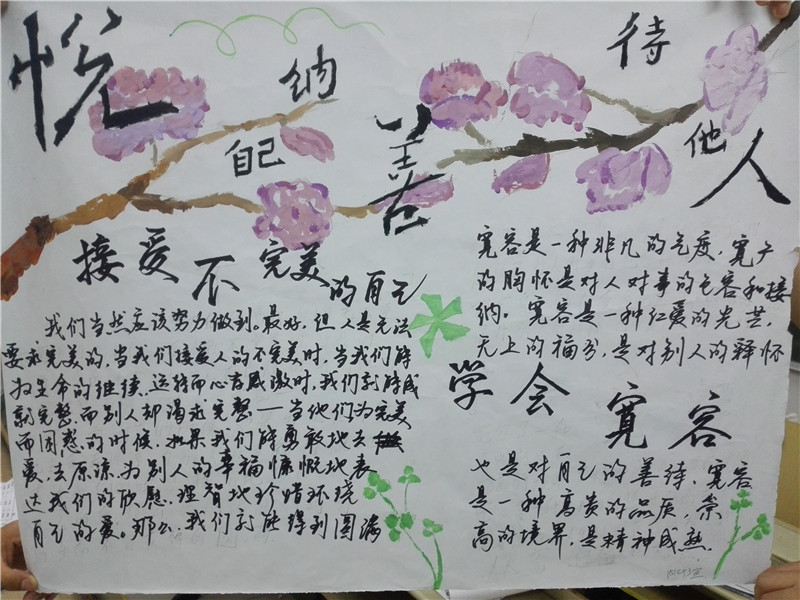 悦纳自己
善待他人
接受不完美的自己
我们当然应该努力做到。最好,但人是无法
要求完美的,当我们接受人的不完美时,当我们能
为生命的继续,运转而心存感激时,我们就能成
就完整,而别人却渴求完整——当他们为完美
而困惑的时候,如果我们能勇敢地去
爱,去原谅,为别人的幸福慷慨地表
达我们的欣慰,理智地珍惜环绕
自己的爱。那么,我们就能得到圆满
宽容是一种非凡的气度,宽广
的胸怀是对人对事的包容和接
纳。宽容是一种仁爱的光芒,
无上的福分,是对别人的释怀
学会宽容
也是对自己的善待,宽容
是一种高贵的品质,崇
高的境界,是精神成熟,